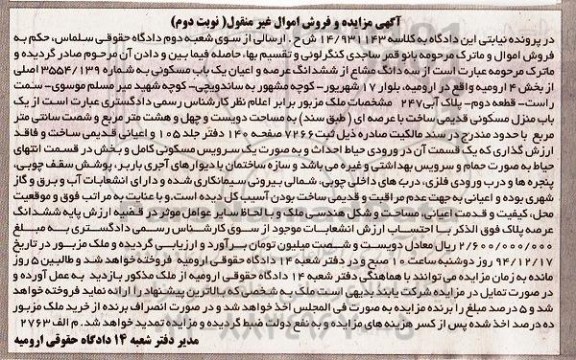 آگهی مزایده و فروش اموال غیر منقول( نوبت دوم)
در پرونده نیابتی این دادگاه به کلاسه ۱۴/۹۳۱۱۴۳ ش ح . ارسالی از سوی شعبه دوم دادگاه حقوقی سلماس، حکم به
فروش اموال و ماترک مرحومه بانو قمر ساجدی کنگرلوئی و تقسیم بها، حاصله فیما بین و دادن آن مرحوم صادر گردیده و
ماترک مرحومه عبارت است از سه دانگ مشاع از ششدانگ عرصه و اعیان یک باب مسکونی به شماره ۳۵۵۴/۱۳۹ اصلی
از بخش ۴ ارومیه واقع در ارومیه، بلوار ۱۷ شهریور - کوچه مشهور به ساندویچی- کوچه شهید میر مسلم موسوی- سمت
راست- قطعه دوم- پلاک آبی ۲۴۷ مشخصات ملک مزبور برابر اعلام نظر کارشناس رسمی دادگستری عبارت است از یک
باب منزل مسکونی قدیمی ساخت با عرصه ای (طبق سند) به مساحت دویست و چهل و هشت متر مربع و شصت سانتی متر
مربع با حدود مندرج در سند مالکیت صادره ذیل ثبت ۷۲۶۶ صفحه ۱۴۰ دفتر جلد ۱۰۵ و اعیانی قدیمی ساخت و فاقد
ارزش گذاری که یک قسمت آن در ورودی حیاط احداث و به صورت یک سرویس مسکونی کامل و بخش در قسمت انتهای
حیاط به صورت حمام و سرویس بهداشتی و غیره می باشد و سازه ساختمان با دیوارهای آجری باربر، پوشش سقف چوبی،
پنجره ها و درب ورودی فلزی، درب های داخلی چوبی، شمالی بیرونی سیمانکاری شده و دارای انشعابات آب و برق و گاز
شهری بوده و اعیانی به جهت عدم مراقبت و قدیمی ساخت بودن آسیب کل دیده است. و با عنایت به مراتب فوق و موقعیت
محل، کیفیت و قدمت اعیانی، مساحت و شکل هندسی ملک و با لحاظ سایر عوامل موثر در قضیه ارزش پایه ششدانگ
عرصه پلاک فوق الذکر با احتساب ارزش انشعابات موجود از سوی کارشناس رسمی دادگستری به مبلغ
۲/۶۰۰/۰۰۰/۰۰۰ ریال معادل دویست و شصت میلیون تومان برآورد و ارزیابی گردیده و ملک مزبور در تاریخ
۹۴/۱۲/۱۷ روز دوشنبه ساعت ۱۰ صبح و در دفتر شعبه ۱۴ دادگاه حقوقی ارومیه فروخته خواهد شد و طالبین ۵ روز
مانده به زمان مزایده می توانند با هماهنگی دفتر شعبه ۱۴ دادگاه حقوقی ارومیه از ملک مذکور بازدید به عمل آورده و
در صورت تمایل در مزایده شرکت یابند بدیهی است ملک به شخصی که بالاترین پیشنهاد را ارائه نماید فروخته خواهد
شد و ۵ درصد مبلغ را برنده مزایده به صورت فی المجلس اخذ خواهد شد و در صورت انصراف برنده از خرید ملک مزبور
ده درصد اخذ شده پس از کسر هزینه های مزایده و به نفع دولت ضبط گردیده و مزایده تمدید خواهد شد. م الف ۲۷۶۳
مدیر دفتر شعبه ۱۴ دادگاه حقوقی ارومیه